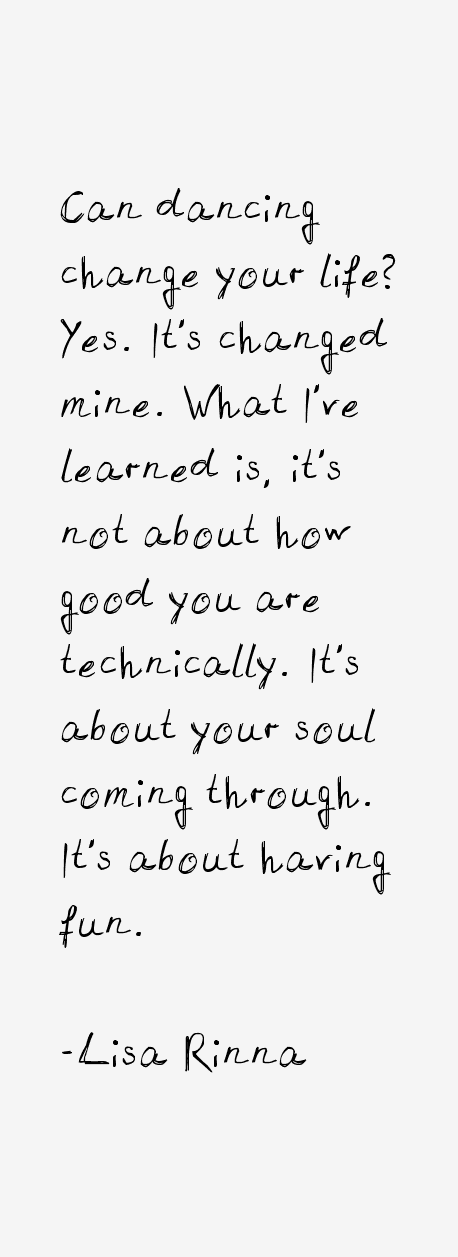 Can dancing
change your life?
Yes. It's changed
mine. What I've
learned is, it's
not about how
good you are
technically. It's
about your soul
coming through.
It's about having
fun.
-Lisa Rinna